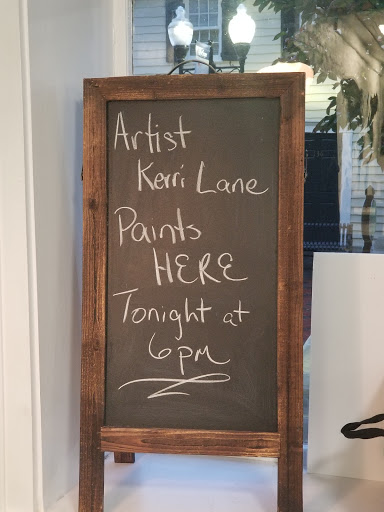 Artist
Kerri Lane
Paints
HERE
Tonight at
6pm